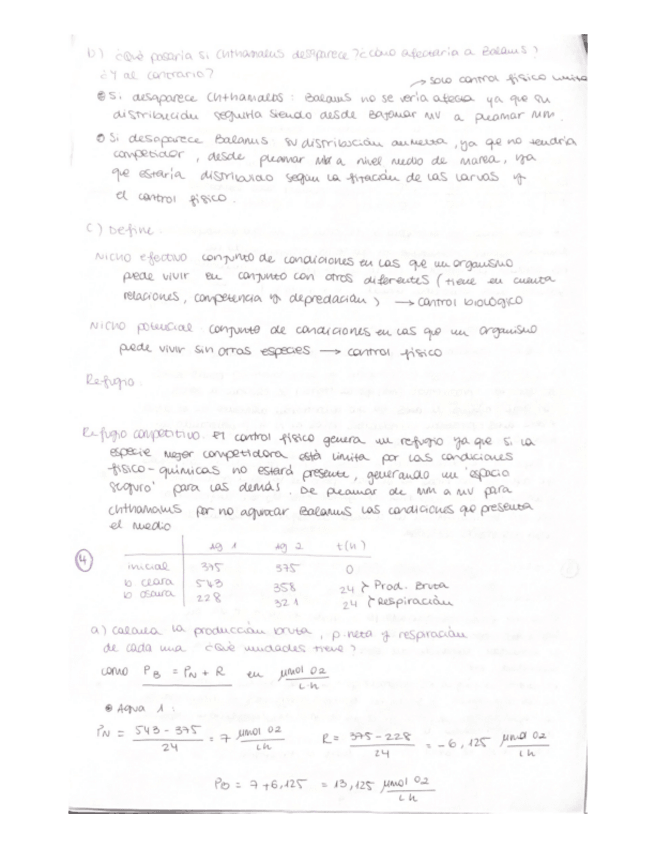 b) ¿Qué pasaría si Chthamalus desaparece? ¿cómo afectaría a Balanus?
¿Y al contrario?
→ solo control físico limita
• Si desaparece Chthamalos: Balanus no se vería afecta ya que su
distribución seguiría siendo desde Bajamar MV a pleamar MM.
• Si desaparece Balanus su distribución aumenta, ya que no tendría
competidor, desde pleamar a nivel medio de marea, ya
que estaría distribuido según la fijación de las larvas y
el control físico.
c) Define:
Nicho efectivo conjunto de condiciones en las que un organismo
puede vivir en conjunto con otros diferentes (tiene en cuenta
relaciones, competencia y depredación) → control biológico
Nicho potencial conjunto de condiciones en las que un organismo
puede vivir sin otras especies → control físico
Refugio:
Refugio competitivo el control físico genera un refugio ya que si la
especie mejor competidora está limita por las condiciones
físico-químicas no estará presente, generando un 'espacio
seguro' para las demás. De pleamar de MM a MV para
Chthamalus por no aguantar Balanus las condiciones que presenta
el medio
4
ag 1 ag 2 t(h)
inicial 375 375 0
b clara 543 358 24 } Prod. Bruta
b oscura 228 321 24 } Respiración
a) calcula la producción bruta, p. neta y respiración
de cada una ¿Qué unidades tiene?
como PB = PN + R en μmol O2 / L h
• Agua 1:
PN = 543 - 375 / 24 = 7 μmol O2 / L h R = 375 - 228 / 24 = -6,125 μmol O2 / L h
PB = 7 + 6,125 = 13,125 μmol O2 / L h